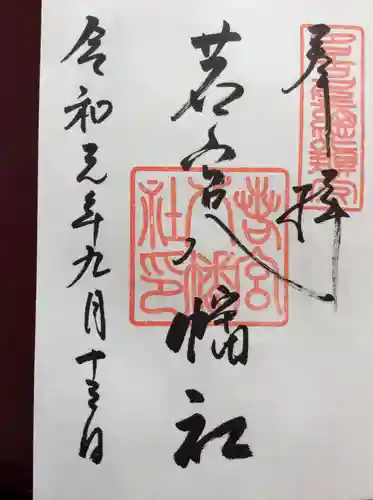 奉拝
若宮八幡社
若宮
八幡
社印
令和元年九月十三日